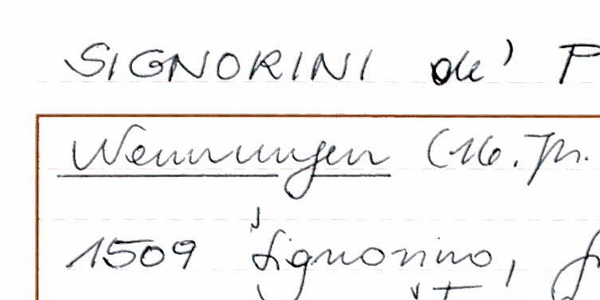 SIGNORINI de' P
Nennungen (16. Jh.
1509 Signorino,